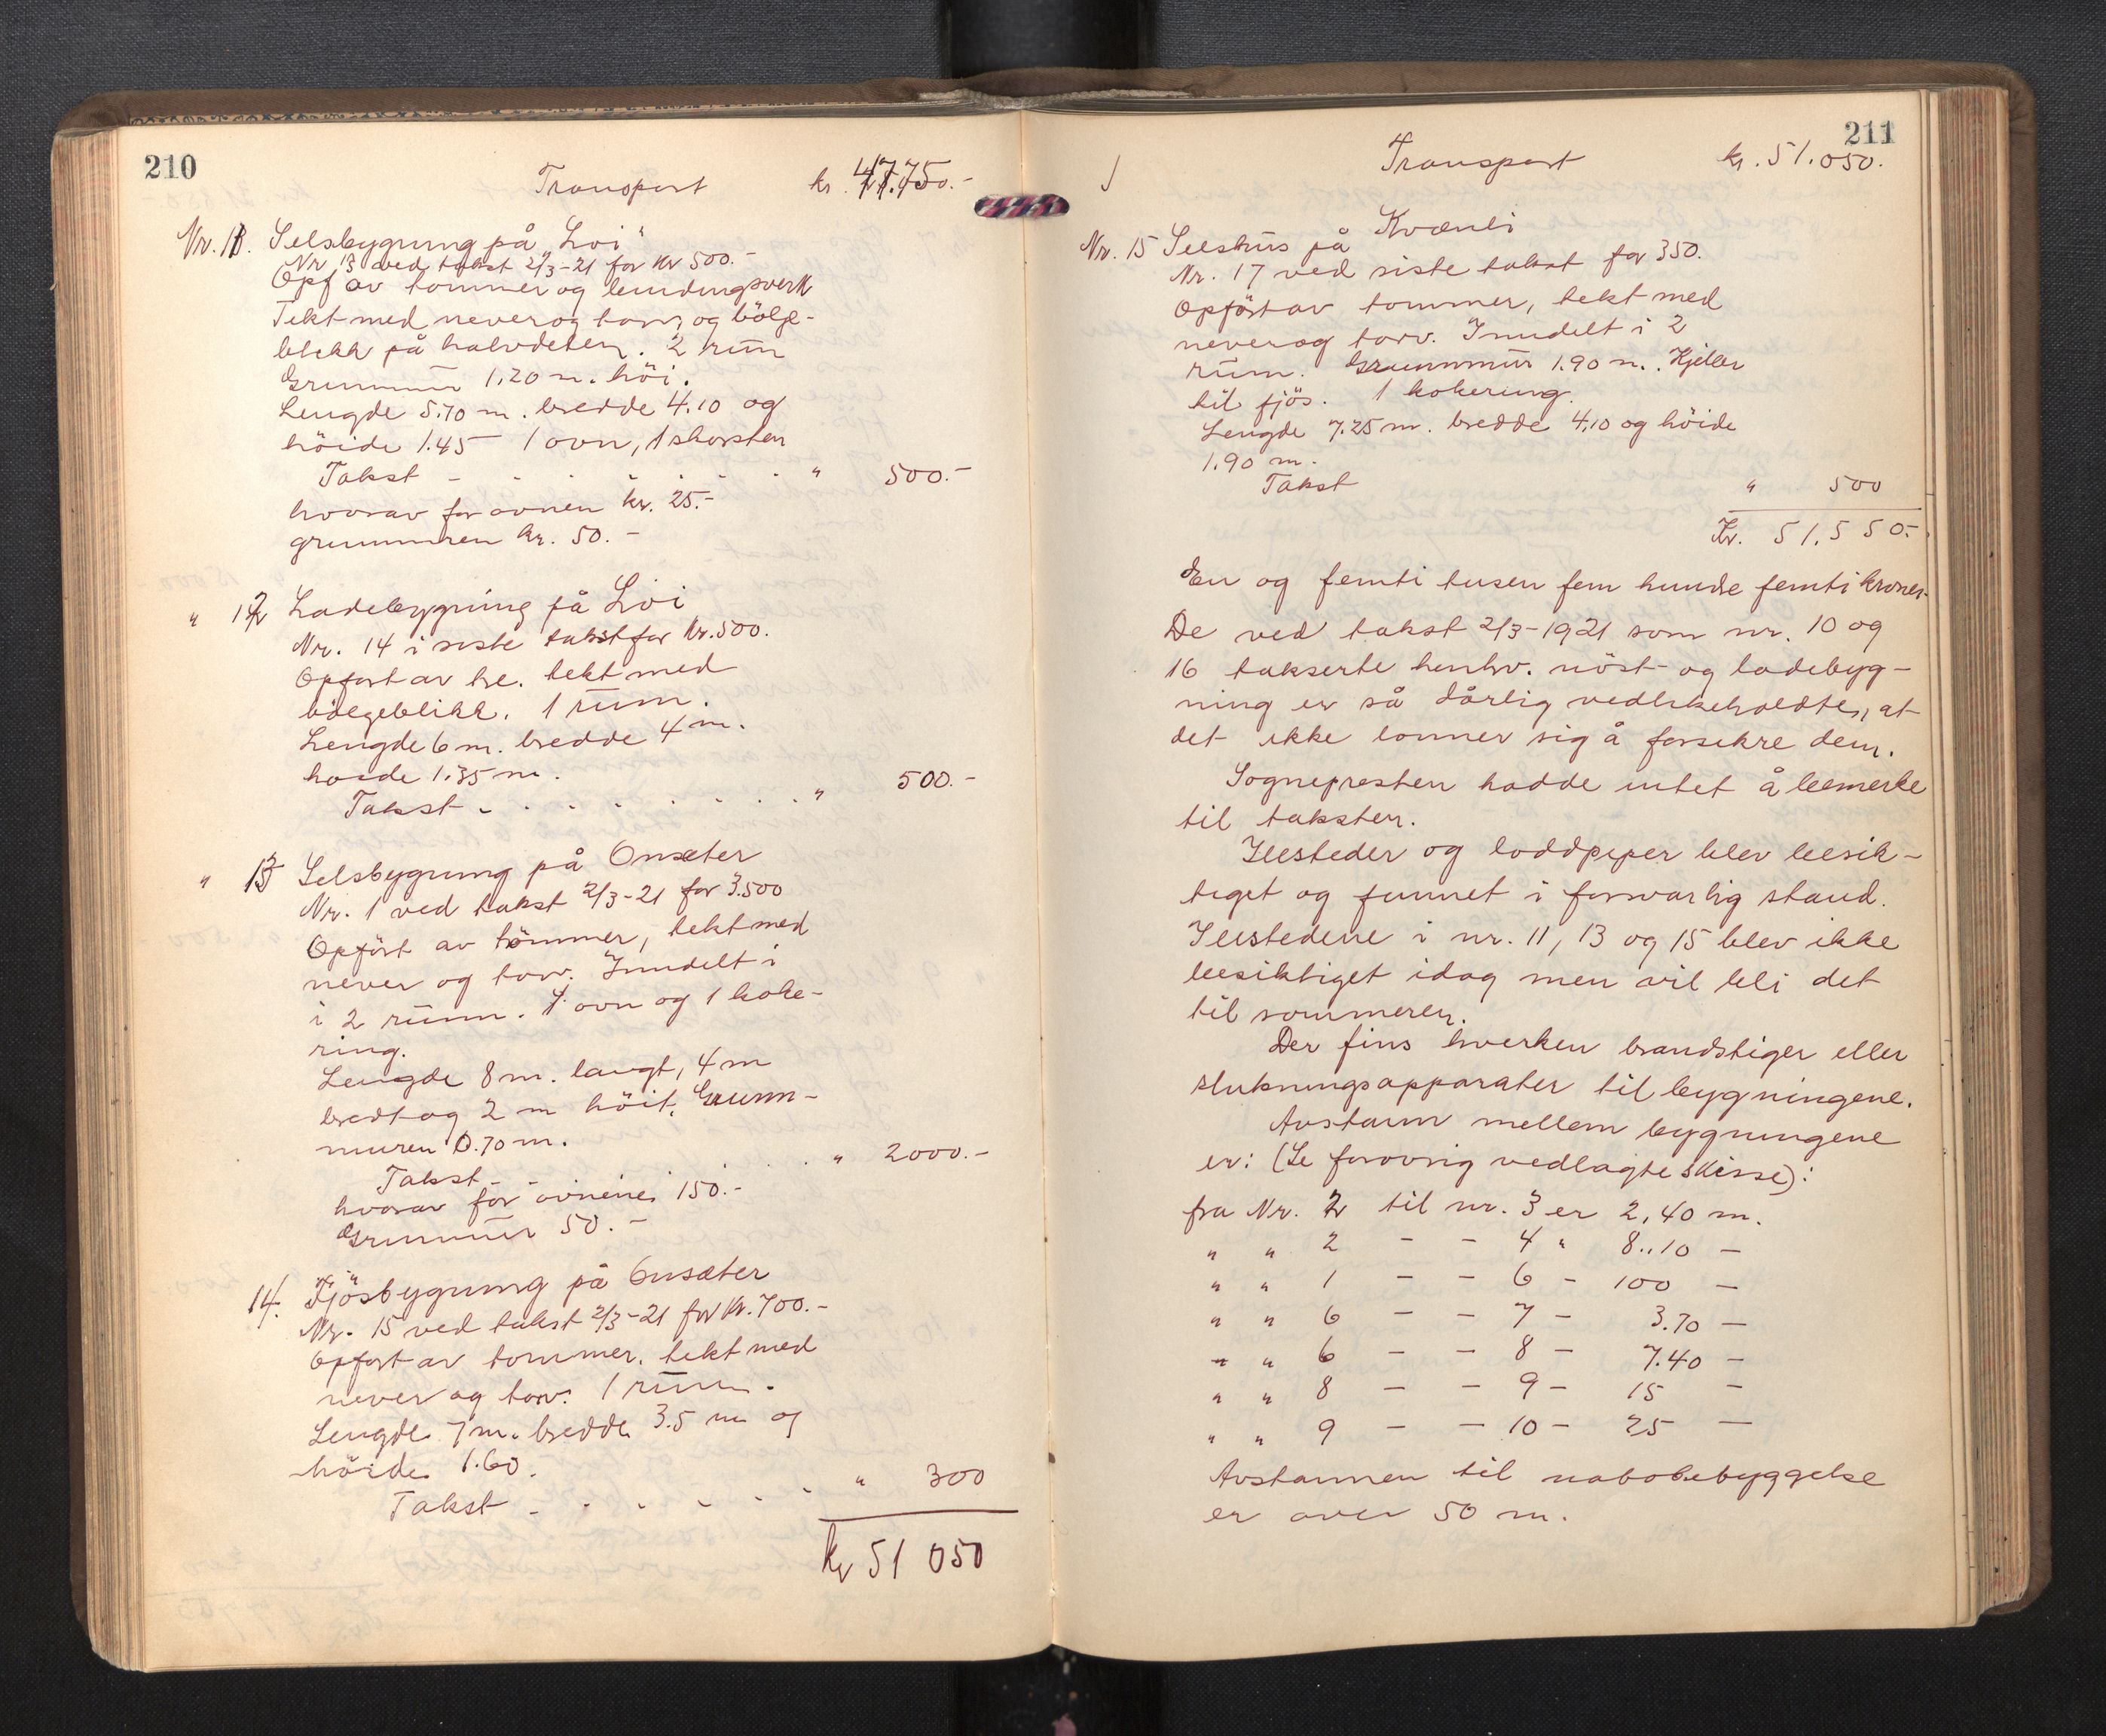 210
Transport kr. 47.750.-
Nr. 11. Selsbygning på "Lvi"
Nr 13 ved takst 2/3-21 for kr 500.-
Opf av tømmer og bindingsverk
Tekt med never og torv, og bölge-
blikk på halvdelen. 2 rum
Grunnmur 1.20 m. höi.
Lengde 5.70 m. bredde 4.10 og
höide 1.45 1 ovn, 1 skorsten
Takst - - - - - - " 500.-
hvorav for ovnen kr. 25.-
grunnmuren kr. 50.-
" 12 Ladebygning på Lvi
Nr. 14 i siste takst for Kr. 500.
Opfört av tre. tekt med
bölgeblikk. 1 rum.
Lengde 6 m. bredde 4 m.
höide 1.35 m.
Takst - - - - - - - - " 500.-
" 13 Selsbygning på Onsæter
Nr. 1 ved takst 2/3-21 for 3.500
Opfört av tömmer, tekt med
never og torv. Inndelt i
i 2 rumm. 1 ovn og 1 koke-
ring.
Lengde 8 m. langt, 4 m
bredt og 2 m höit. Grunn-
muren 0.70 m.
Takst - - - - - " 2000.-
hvorav for ovnene 150.-
Grunnmur 50.-
14. Fjösbygning på Onsæter
Nr. 15 ved takst 2/3-21 for Kr. 700.-
Opfört av tømmer. tekt med
never og torv. 1 rum.
Lengde 7 m. bredde 3.5 m og
höide 1.60.
Takst - - - - - - " 300
kr 51 050
211
Transport kr. 51.050.
Nr. 15 Selshus på Kvænli
Nr. 17 ved siste takst for 350.
Opfört av tømmer, tekt med
never og torv. Inndelt i 2
rum. Grunnmur 1.90 m. Kjeller
til fjös. 1 kokering.
Lengde 7.25 m. bredde 4.10 og höide
1.90 m.
Takst " 500
Kr. 51.550.-
En og femti tusen fem hundre femti kroner.
De ved takst 2/3-1921 som nr. 10 og
16 takserte henhv. nöst- og ladebyg-
ning er så dårlig vedlikeholdte, at
det ikke lønner sig å forsikre dem.
Sognepresten hadde intet å bemerke
til taksten.
Ildsteder og loddpiper blev besik-
tiget og funnet i forsvarlig stand.
Ildstedene i nr. 11, 13 og 15 blev ikke
besiktiget idag men vil bli det
til sommeren.
Der fins hverken brandstiger eller
slukningsapparater til bygningene.
Avstann mellem bygningene
er: (Se forøvrig vedlagte skisse):
fra Nr. 2 til nr. 3 er 2,40 m.
" " 2 - - 4 " 8..10 -
" " 1 - - 6 - 100 -
" " 6 - - 7 - 3.70 -
" " 6 - - 8 - 7.40 -
" " 8 - - 9 - 15 -
" " 9 - - 10 - 25 -
Avstannen til nabobebyggelse
er over 50 m.